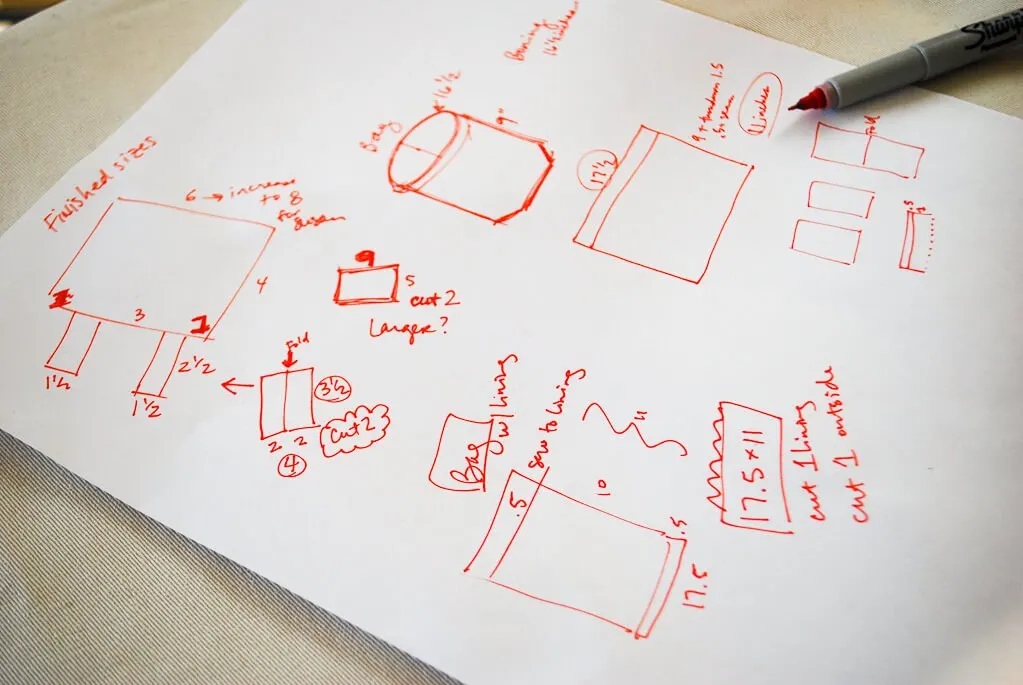 Finished sizes
6 → increase
to 8
for
4
3
2 1/2
1 1/2
1 1/2
Bag
16 1/2
9"
16 1/2 inches
17 1/2
9 +
1.5
.5 seam
11 inches
Fold
.5
Sharpie
9
5
cut 2
Larger?
Fold
3 1/2
2 2
4
Cut 2
Bag
w/ lining
sew to lining
.5
11
10
.5
17.5
17.5 x 11
cut 1 lining
cut 1 outside